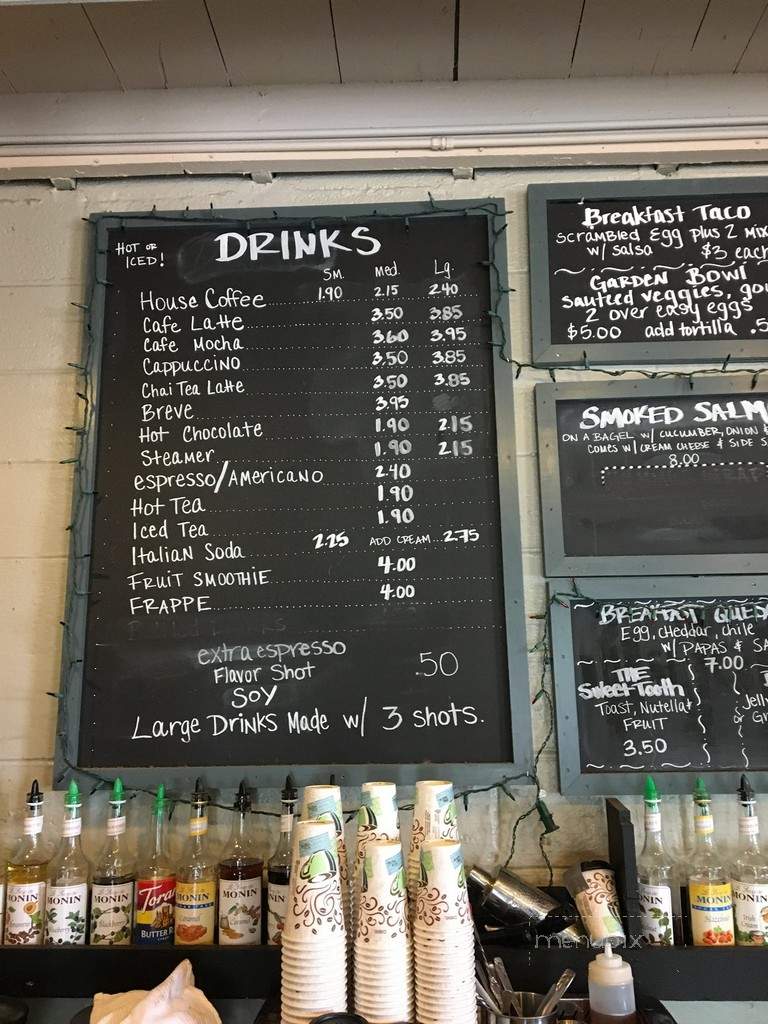 HOT OR ICED!
DRINKS
Sm. Med. Lg.
House Coffee 1.90 2.15 2.40
Cafe Latte 3.50 3.85
Cafe Mocha 3.60 3.95
Cappuccino 3.50 3.85
Chai Tea Latte 3.50 3.85
Breve 3.95
Hot Chocolate 1.90 2.15
Steamer 1.90 2.15
espresso/Americano 2.40
Hot Tea 1.90
Iced Tea 1.90
Italian Soda 2.25 ADD CREAM 2.75
FRUIT SMOOTHIE 4.00
FRAPPE 4.00
extra espresso
Flavor Shot .50
SOY
Large Drinks Made w/ 3 shots.
Breakfast Taco
scrambled Egg plus 2 Mix
w/ salsa $3 each
Garden Bowl
sauteed veggies,
2 over easy eggs
$5.00 add tortilla .5
SMOKED SALM
ON A BAGEL w/ CUCUMBER, ONION &
COMES w/ CREAM CHEESE & SIDE S
8.00
Egg, cheddar, chile
w/ PAPAS & SA
7.00
THE
Sweet Tooth
Toast, Nutella +
FRUIT
3.50
MONIN
MONIN
MONIN
MONIN
MONIN
MONIN
MONIN
MONIN
MONIN
menupix